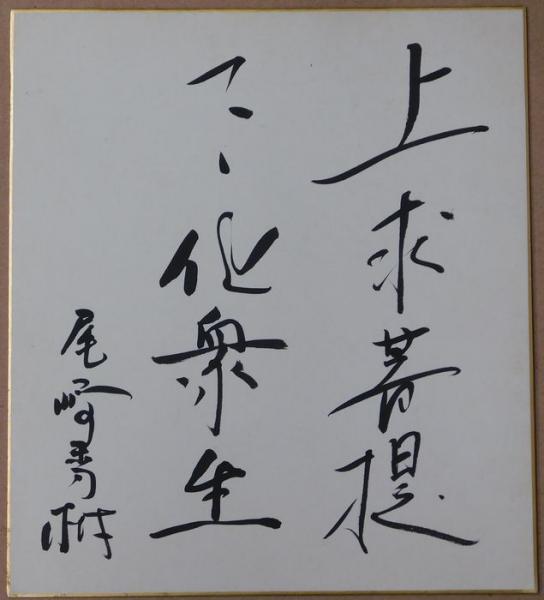 上求菩提
下化衆生
尾崎秀樹